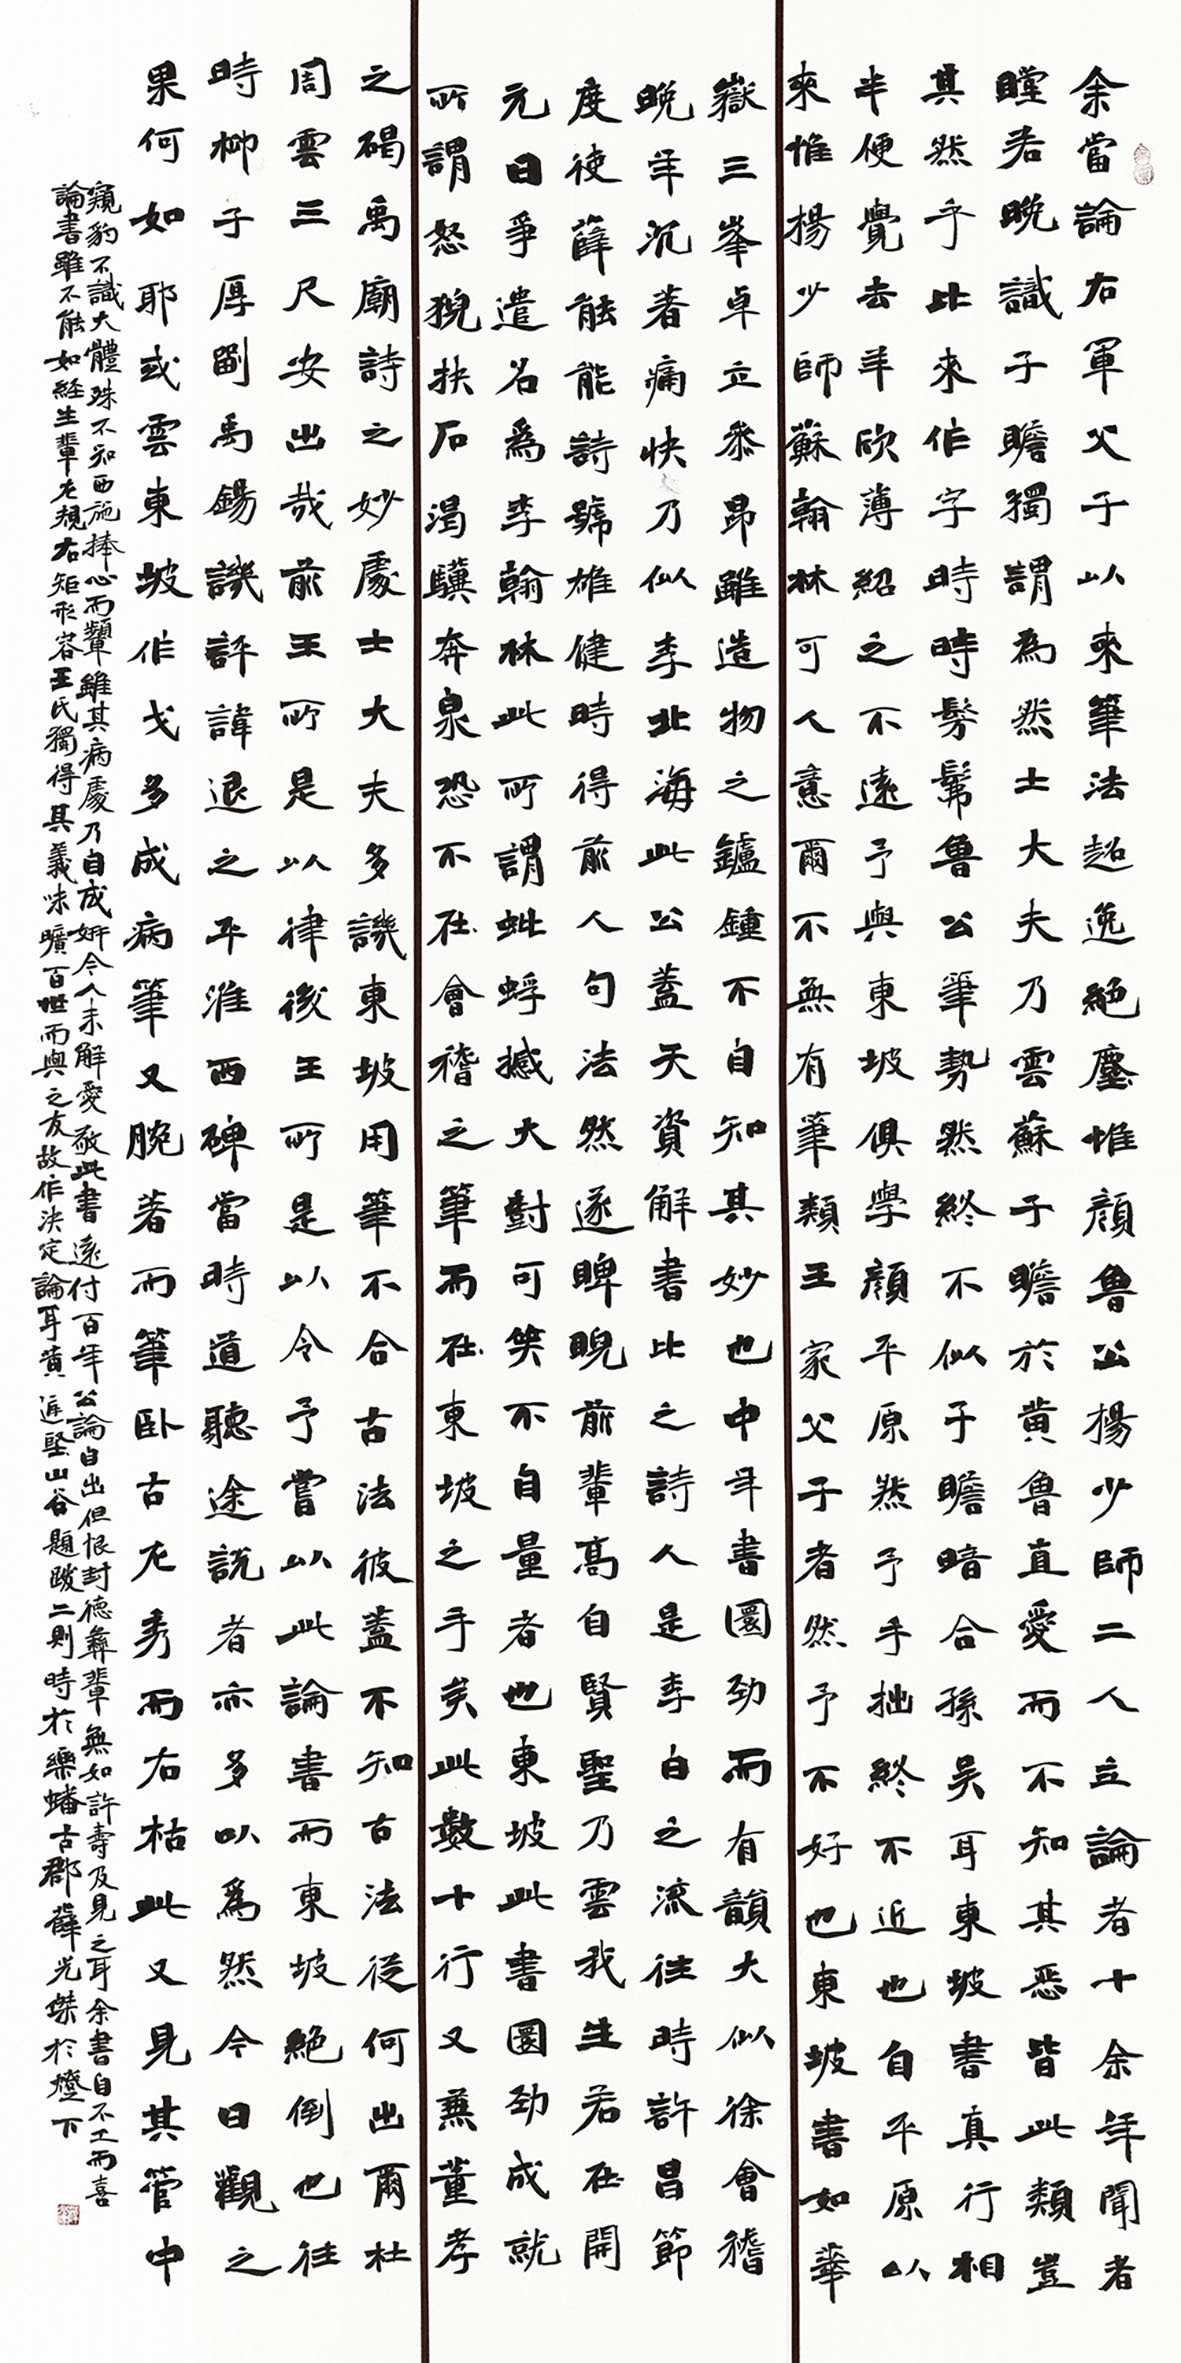 余當論右軍父子以來筆法超逸絕塵惟顏魯公楊少師二人立論者十余年聞者
瞠若晚識子瞻獨謂為然士大夫乃雲蘇子瞻於黃魯直愛而不知其惡皆此類豈
其然乎比來作字時時髣髴魯公筆勢然終不似子瞻暗合孫吳耳東坡書真行相
半便覺去羊欣薄紹之不遠予與東坡俱學顏平原然予手拙終不近也自平原以
來惟楊少師蘇翰林可人意爾不無有筆類王家父子者然予不好也東坡書如華
嶽三峯卓立參昴雖造物之鑪錘不自知其妙也中年書圜勁而有韻大似徐會稽
晚年沉著痛快乃似李北海此公蓋天資解書比之詩人是李白之流往時許昌節
度使薛能能詩號雄健時得前人句法然遂睥睨前輩高自賢聖乃雲我生若在開
元日爭遣名為李翰林此所謂蚍蜉撼大對可笑不自量者也東坡此書圜勁成就
所謂怒猊抉石渴驥奔泉恐不在會稽之筆而在東坡之手矣此數十行又兼董孝
之碣禹廟詩之妙處士大夫多譏東坡用筆不合古法彼蓋不知古法從何出爾杜
周雲三尺安出哉前王所是以律後王所是以令予嘗以此論書而東坡絕倒也往
時柳子厚劉禹錫譏評諱退之平淮西碑當時道聽途說者亦多以為然今日觀之
果何如耶或雲東坡作戈多成病筆又腕著而筆臥古左秀而右枯此又見其管中
窺豹不識大體殊不知西施捧心而顰雖其病處乃自成妍今人未解愛敬此書遠付百年公論自出但恨封德彝輩無如許壽及見之耳余書自不工而喜
論書雖不能如經生輩左規右矩形容王氏獨得其義味曠百世而與之友故作決定論耳黃庭堅山谷題跋二則時於樂蟠古郡薛光傑於燈下